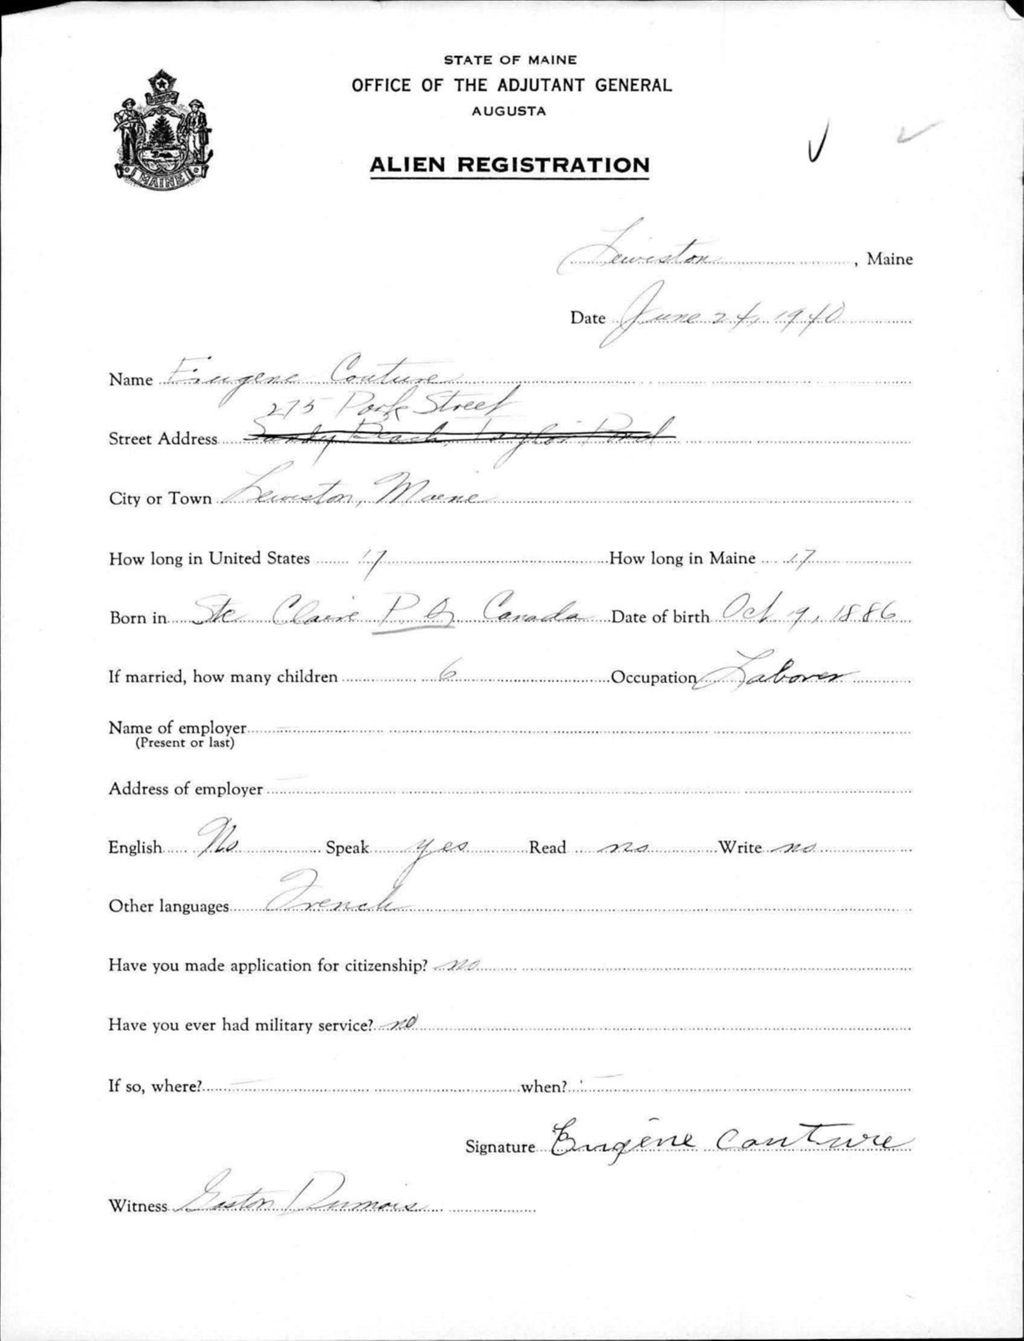 STATE OF MAINE
OFFICE OF THE ADJUTANT GENERAL
AUGUSTA
ALIEN REGISTRATION
MAINE
Lewiston, Maine
Date June 24, 1940
Name Eugene Couture
275 Park Street
Street Address Sandy Beach, Taylor Pond
City or Town Lewiston, Maine
How long in United States 17 How long in Maine 17
Born in Ste Claire P Q Canada Date of birth Oct 9, 1886
If married, how many children 6 Occupation Laborer
Name of employer
(Present or last)
Address of employer
English No Speak yes Read no Write no
Other languages French
Have you made application for citizenship? no
Have you ever had military service? no
If so, where? when?
Signature Eugène Couture
Witness Gaston Dumais